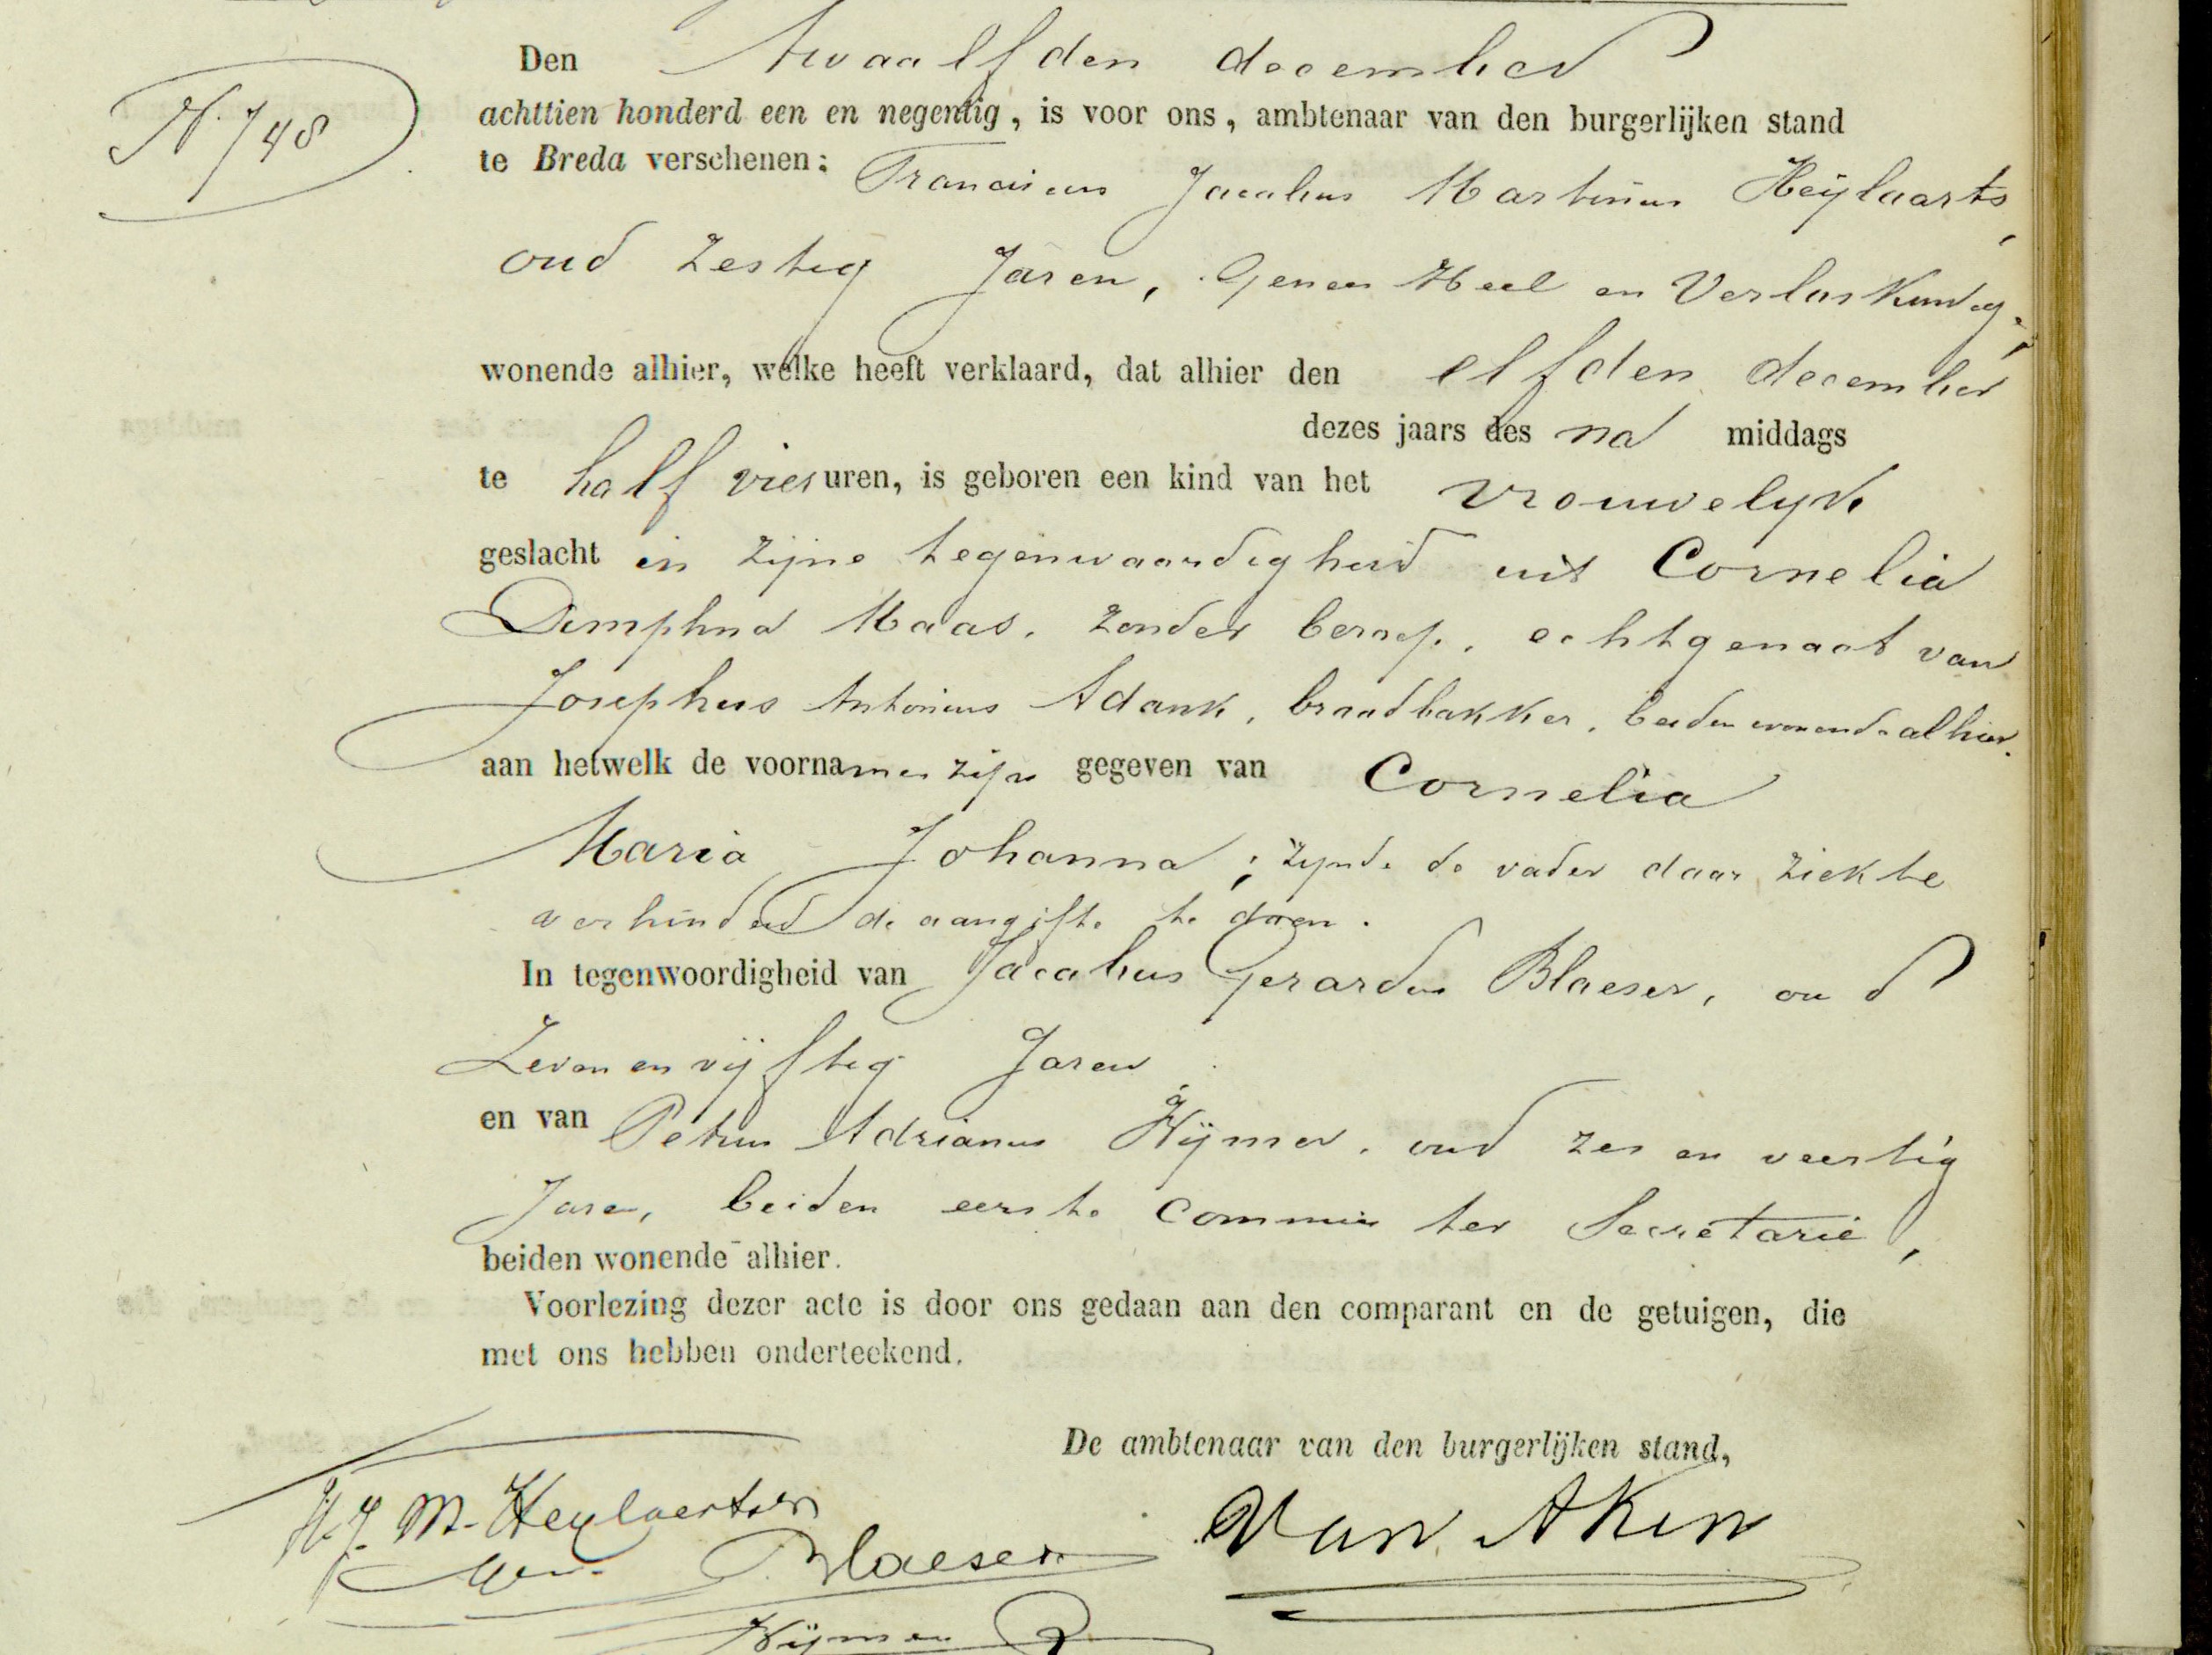 Den twaalfden december
N. 748
achttien honderd een en negentig, is voor ons, ambtenaar van den burgerlijken stand
te Breda verschenen: Franciscus Jacobus Martinus Heijlaarts,
oud zestig Jaren, Genees Heel en Verloskundige,
wonende alhier, welke heeft verklaard, dat alhier den elfden december
dezes jaars des na middags
te half vier uren, is geboren een kind van het vrouwelijk
geslacht in zijne tegenwoordigheid uit Cornelia
Dimphna Maas, zonder beroep, echtgenoot van
Josephus Antonius Adank, broodbakker, beiden wonende alhier.
aan hetwelk de voornamen zijn gegeven van Cornelia
Maria Johanna; zijnde de vader door ziekte
verhinderd de aangifte te doen.
In tegenwoordigheid van Jacobus Gerardus Blaeser, oud
Zeven en vijftig Jaren
en van Petrus Adrianus Hijmer, oud zes en veertig
Jaren, beiden eerste commies ter Secretarie,
beiden wonende alhier.
Voorlezing dezer acte is door ons gedaan aan den comparant en de getuigen, die
met ons hebben onderteekend.
De ambtenaar van den burgerlijken stand,
M. Heylaerts
Blaeser
Van Aken